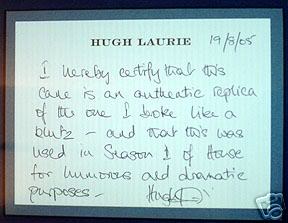 HUGH LAURIE 19/8/05
I hereby certify that this
cane is an authentic replica
of the one I broke like a
klutz – and that this was
used in Season 1 of House
for humorous and dramatic
purposes –
Hugh